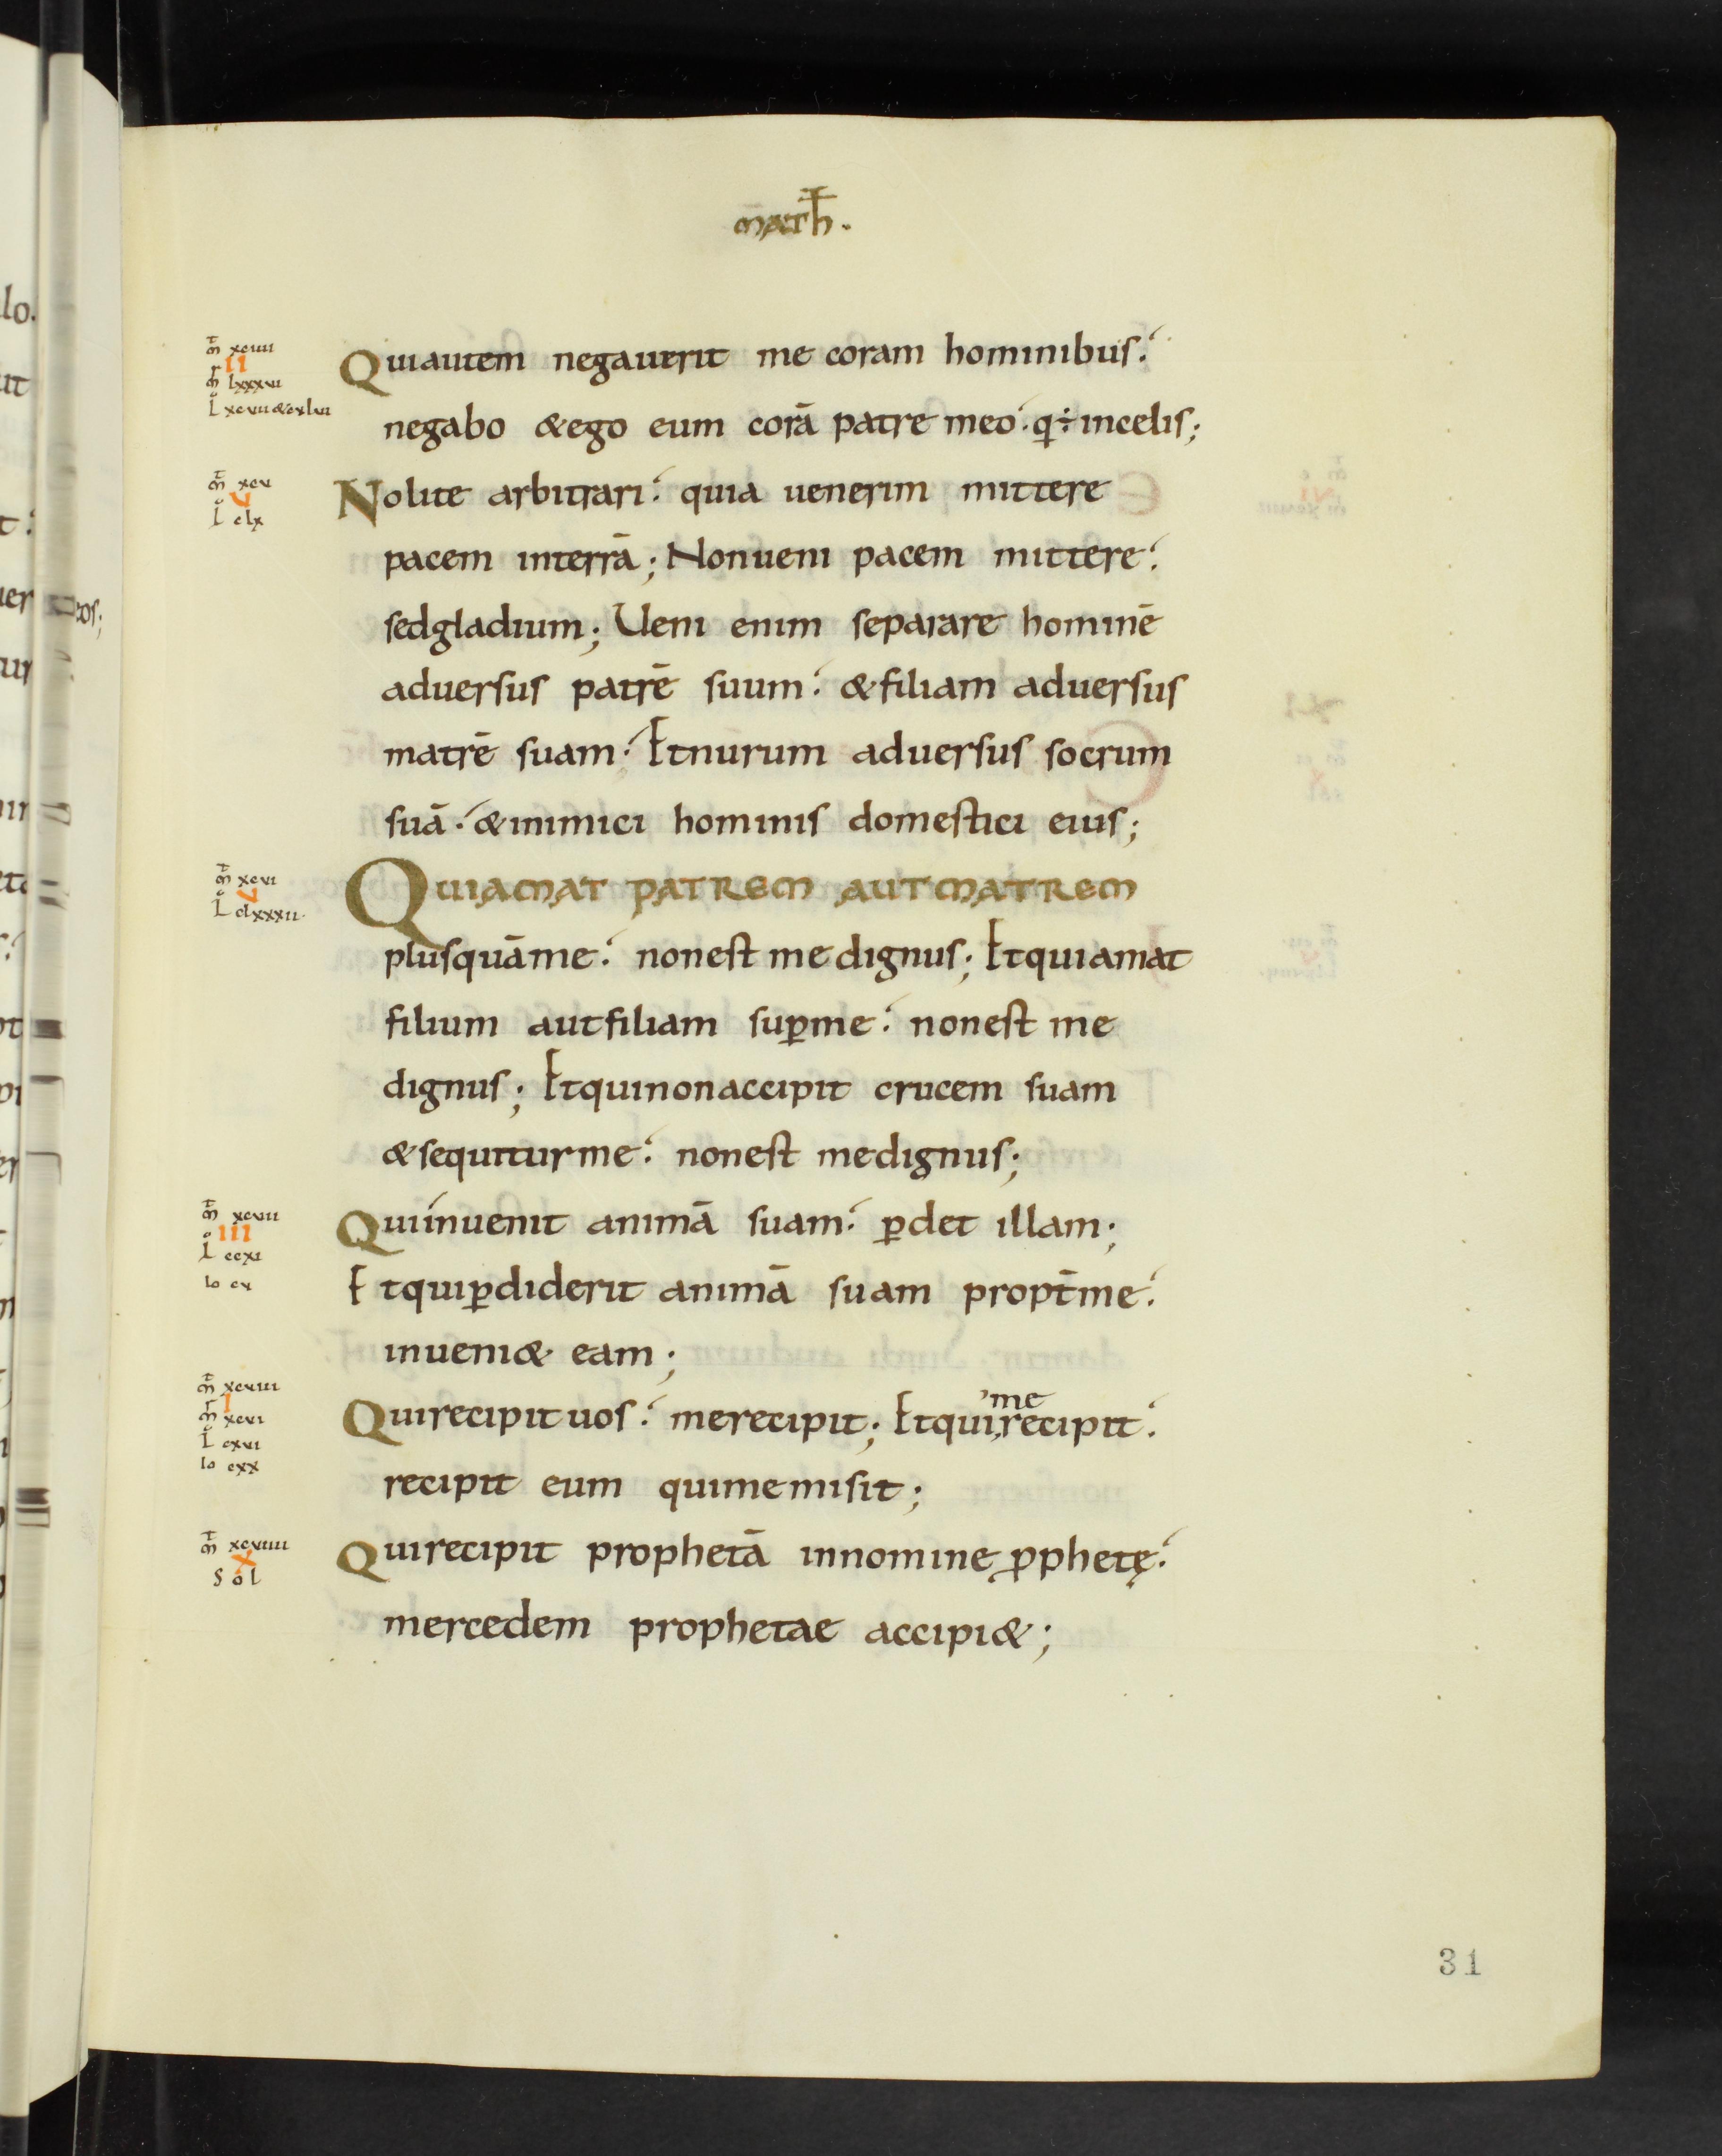 math̄.
m̄ xciiii
II
m̄ lxxxvi
L xcvii & cxlvi
Quiautem negauerit me coram hominibus.
negabo &ego eum corā patre meo. q÷ incelis;
m̄ xcv
V
L clx
Nolite arbitrari. quia uenerim mittere
pacem interrā; Nonueni pacem mittere.
sedgladium; Ueni enim separare hominē
aduersus patrē suum. &filiam aduersus
matrē suam. Etnurum aduersus socrum
suā. &inimici hominis domestici eius;
m̄ xcvi
V
L clxxxii.
QUIAMAT PATREM AUTMATREM
plusquāme. nonest me dignus; Etquiamat
filium autfiliam suꝑme. nonest me
dignus; Etquinonaccipit crucem suam
&sequiturme. nonest medignus;
m̄ xcvii
III
L ccxi
Io cv
Quiinuenit animā suam. ꝑdet illam;
Etquiꝑdiderit animā suam propt̄me.
inueni& eam;
m̄ xcviii
I
m̄ xcvi
L cxvi
Io cxx
Quirecipituos. merecipit; Etqui me recipit.
recipit eum quimemisit;
m̄ xcviiii
X
Sol
Quirecipit prophetā innomine ꝓphetę.
mercedem prophetae accipi&;
31